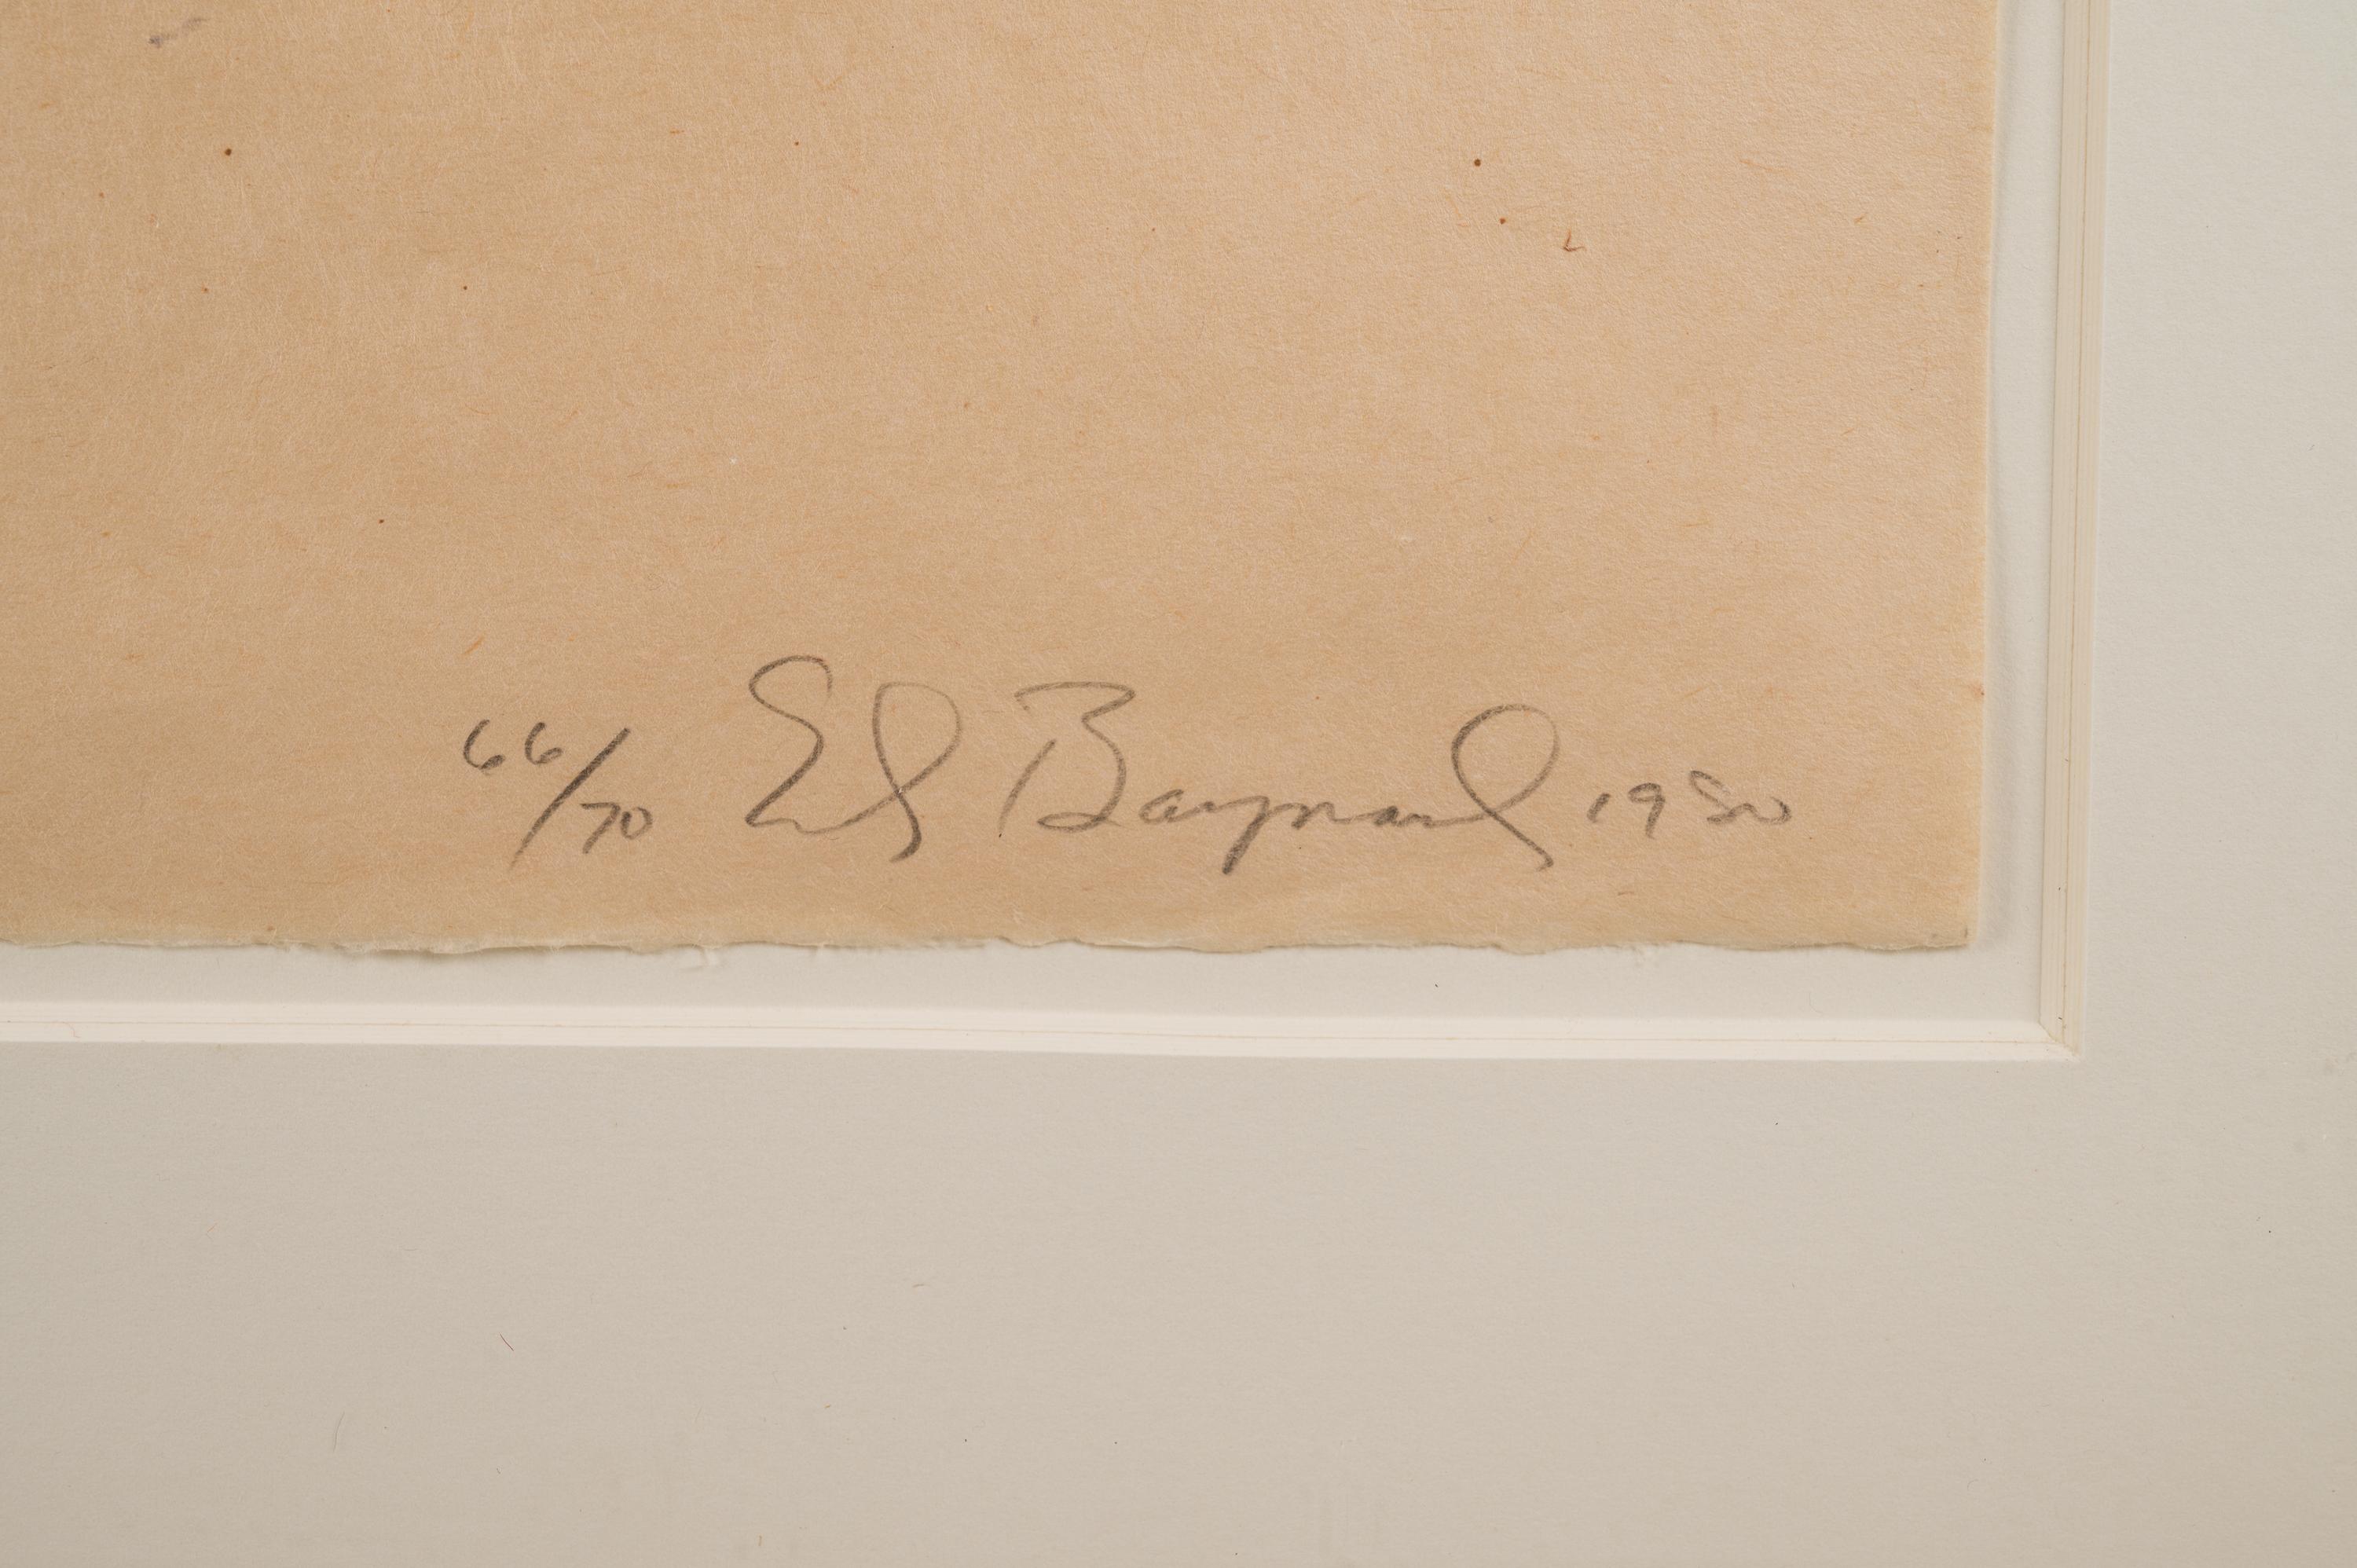 66/70 Ed Baynard 1980